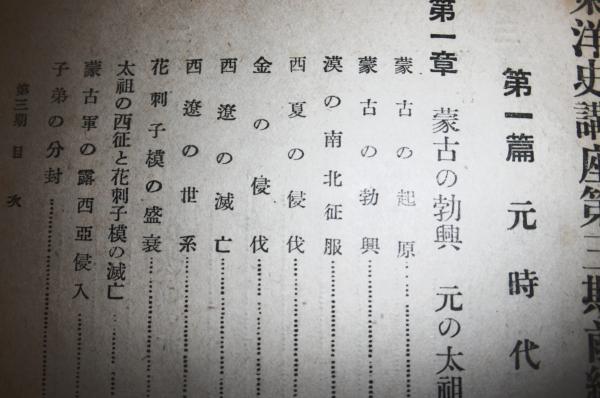 東洋史講座第三期前編
第一篇 元時代
第一章 蒙古の勃興 元の太祖
蒙古の起原
蒙古の勃興
漠の南北征服
西夏の侵伐
金の侵伐
西遼の滅亡
西遼の世系
花刺子模の盛衰
太祖の西征と花刺子模の滅亡
蒙古軍の露西亞侵入
子弟の分封
第三期 目次